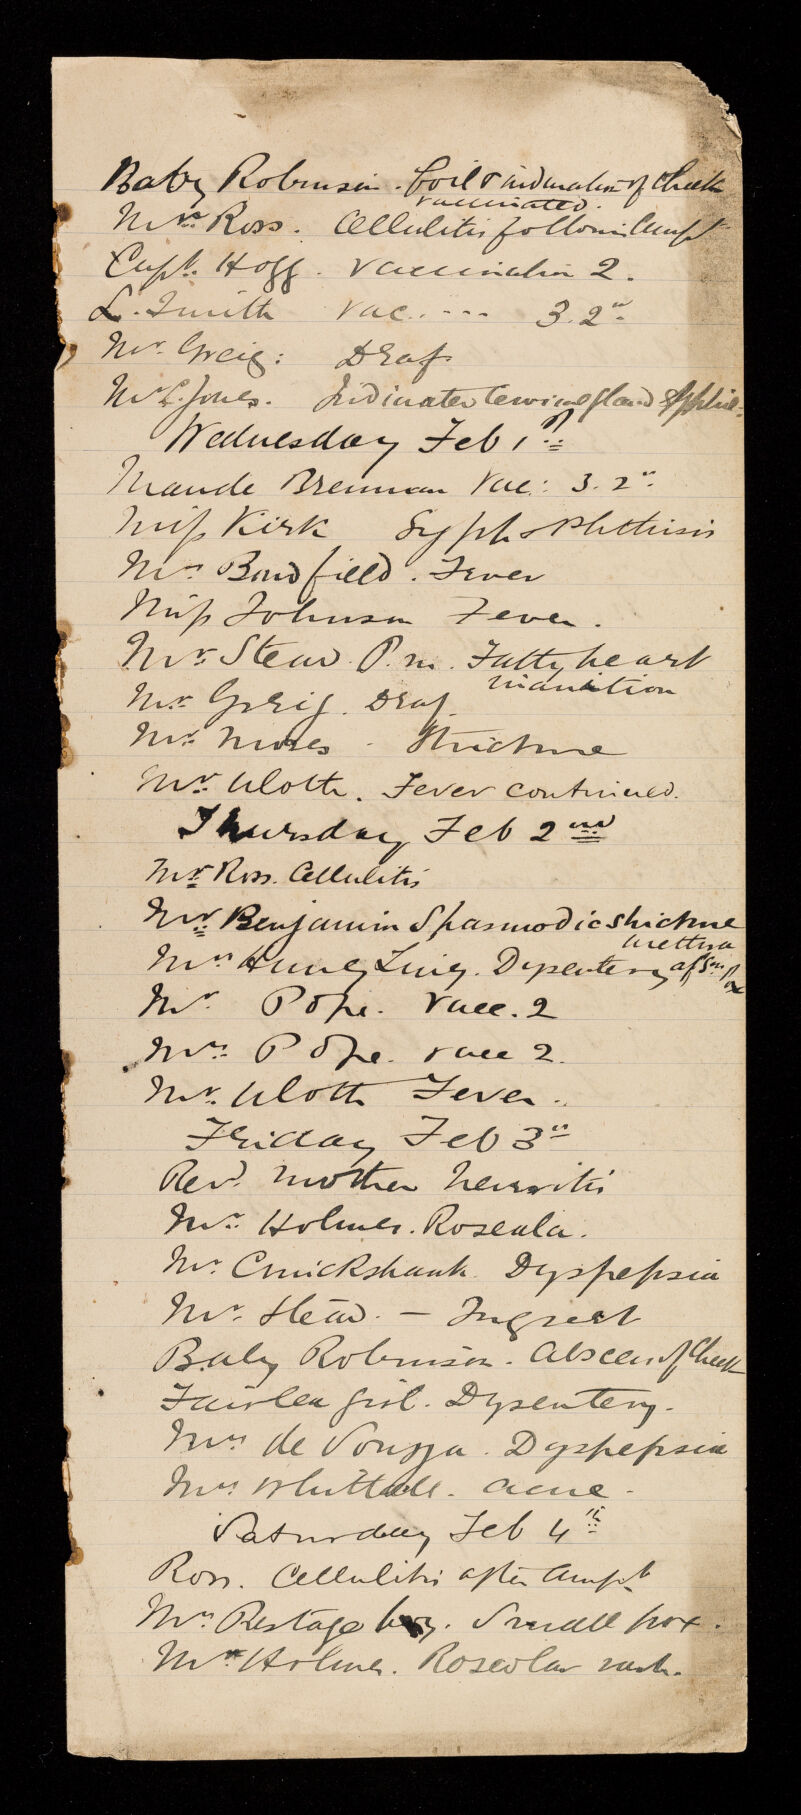 Baby Robinson. boil & induration of Cheek
vaccinated.
Mrs. Ross. Cellulitis following Ampt
Capt. Hogg. Vaccination 2.
L. Smith vac. --- 3. 2"
Mr. Greig: Deaf
Mr L. Jones. Indurated Cervical gland
Wednesday Feb 1st
Maude Brennan Vac: 3. 2"
Miss Kirk Syph & Phthisis
Mrs Bondfield. Fever
Miss Johnson Fever.
Mr Stead P.m. Fatty heart
inanition
Mr. Greig. Deaf
Mr. Moses - Stricture
Mr. Uloth. Fever continued.
Thursday Feb 2nd
Mr Ross. Cellulitis
Mr Benjamin Spasmodic Stricture
urethra
Mrs Hung Ling. Dysentery af Sm Pox
Mr Pope. Vacc. 2
Mrs. Pope. vacc 2.
Mr. Uloth Fever.
Friday Feb 3rd
Revd. Mother Neuritis
Mrs. Holmes. Roseola.
Mr. Cruickshank Dyspepsia
Mr. Stead. —
Baby Robinson. Abscess of Cheek
Fairlea girl. Dysentery.
Mrs de Souza. Dyspepsia
Mrs Whittall. acne.
Saturday Feb 4th
Ross. Cellulitis after Ampt
Mrs Restage boy. Small pox.
Mrs Holmes. Roseolar rash.